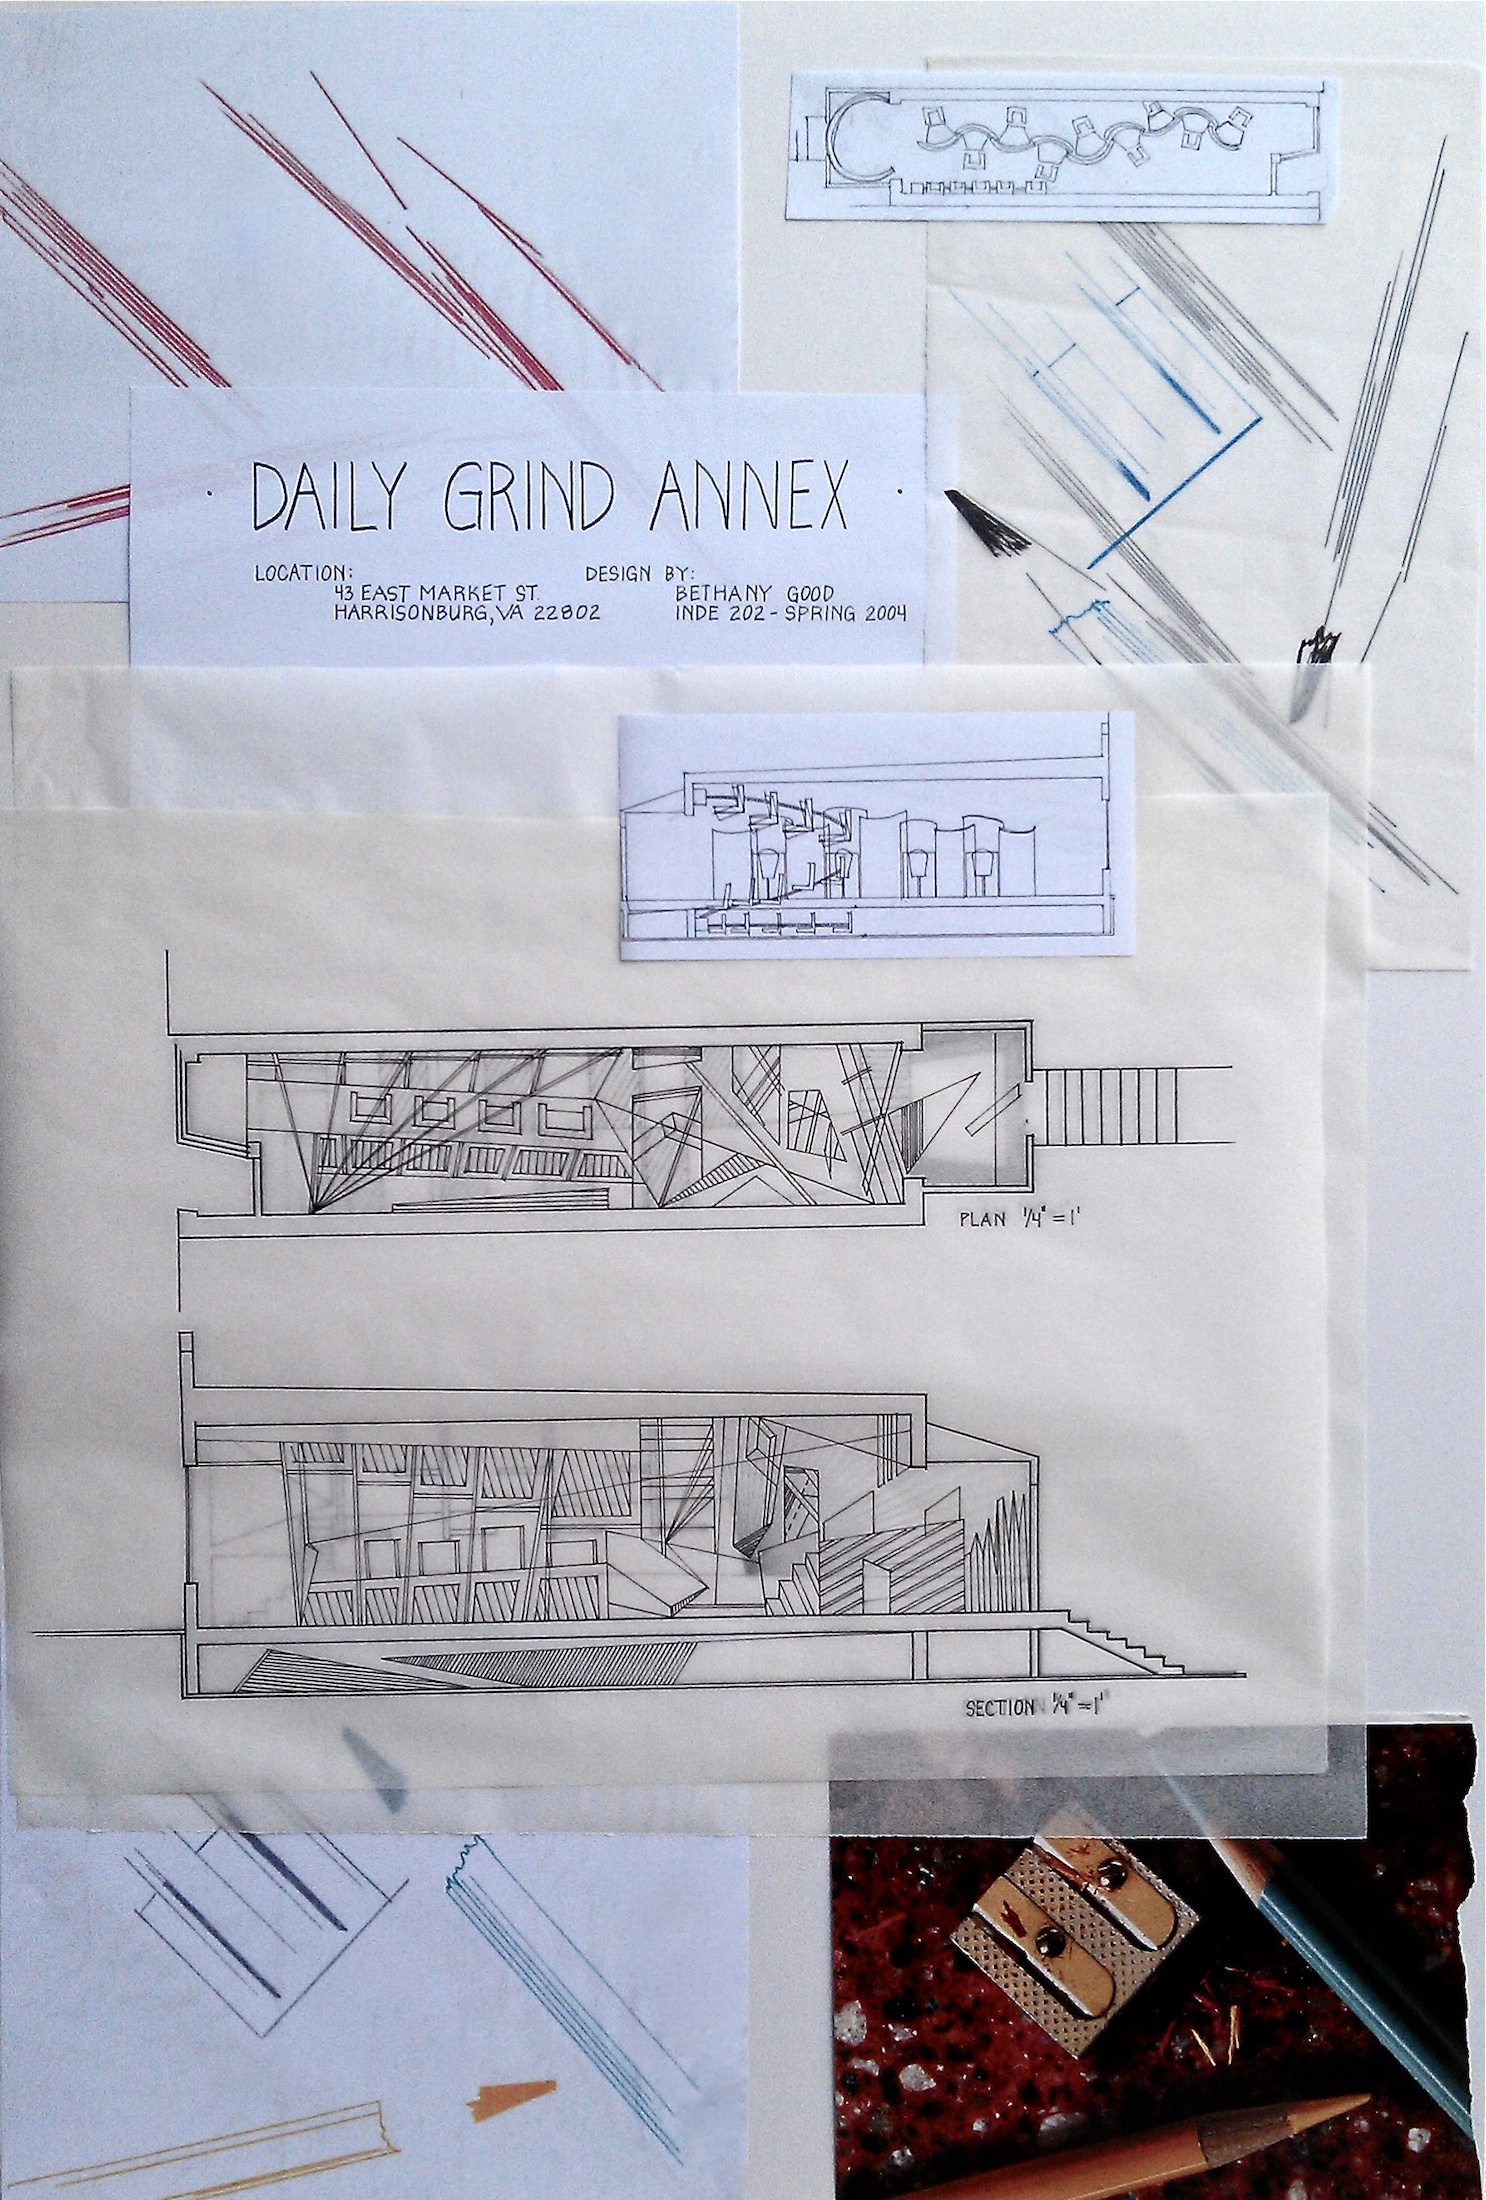 · DAILY GRIND ANNEX ·
LOCATION:
43 EAST MARKET ST.
HARRISONBURG, VA 22802
DESIGN BY:
BETHANY GOOD
INDE 202 - SPRING 2004
PLAN 1/4" = 1'
SECTION 1/4" = 1'